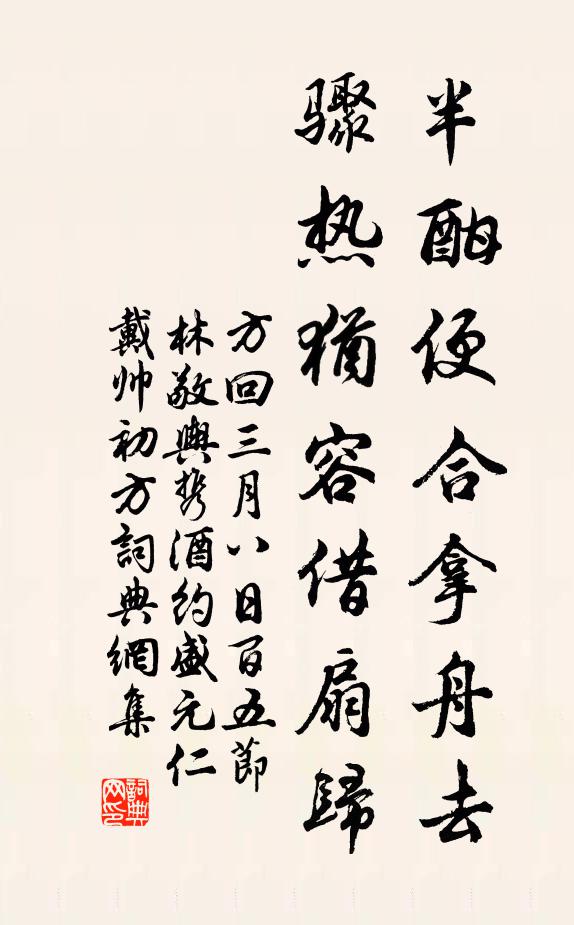 半酣便合拿舟去
骤热犹容借扇歸
方回三月八日百五節
林敬輿携酒约盛元仁
戴帅初方詞典網集
詞典网印